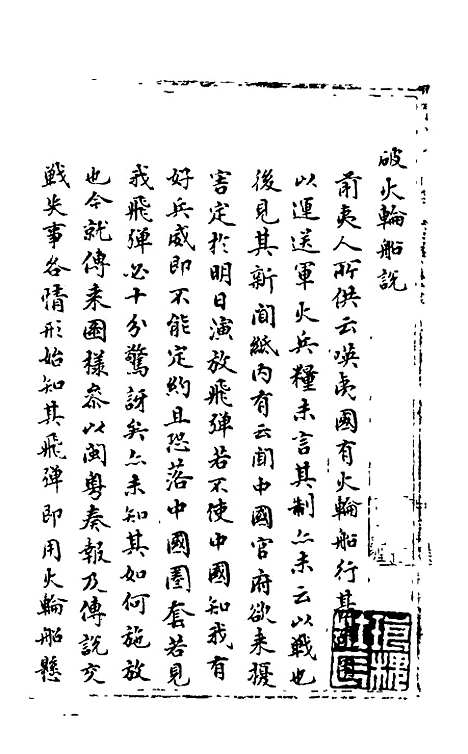 破火輪船說
前夷人所供云暎夷國有火輪船行其
以運送軍火兵糧未言其制亦未云以戰也
後見其新聞紙內有云聞中國官府欲来擾
害定扵明日演放飛彈若不使中國知我有
好兵威即不能定約且恐落中國圈套若見
我飛彈必十分驚訝矣亦未知其如何施放
也今就傳来圖樣叅以閩粤奏報及傳說交
戰失事各情形始知其飛彈即用火輪船懸